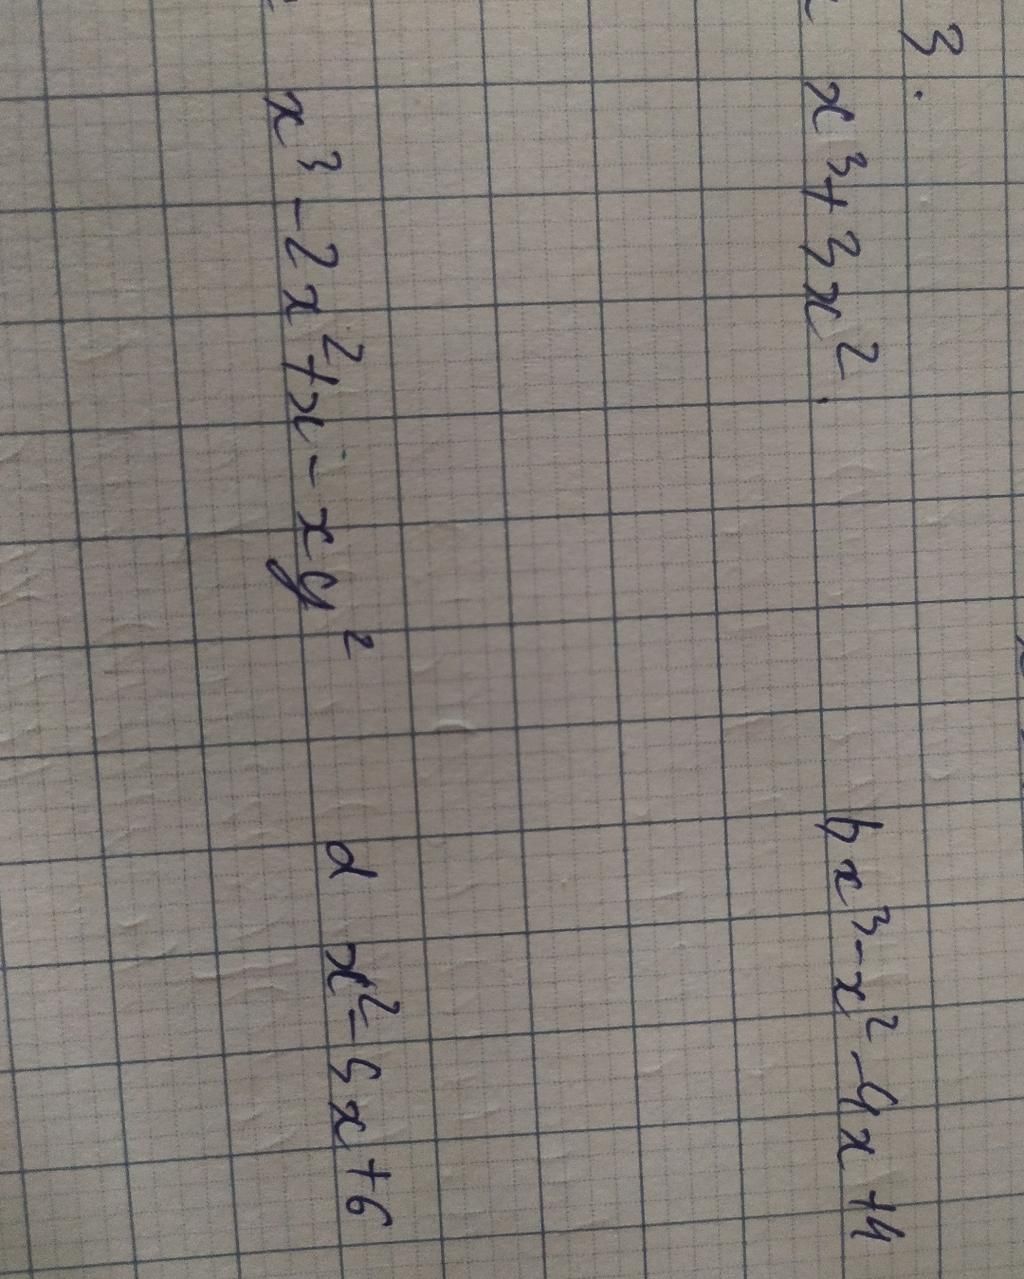 3.
x³+3x².
b x³-x²-4x+4
x³-2x²+x-xy²
d x²-5x+6